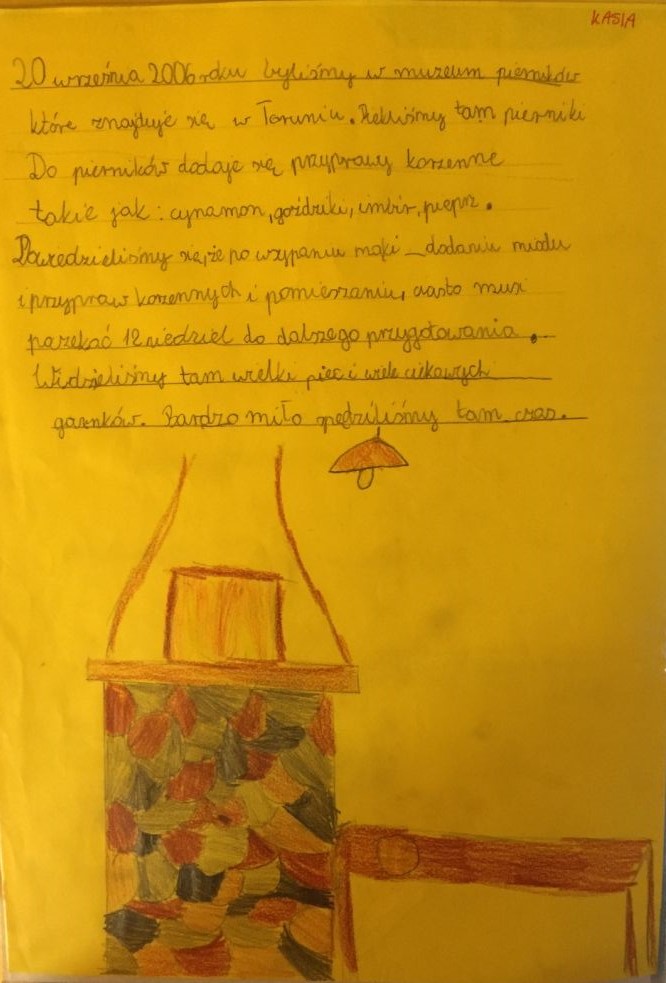 KASIA
20 września 2006 roku byliśmy w muzeum pierników
które znajduje się w Toruniu. Piekliśmy tam pierniki
Do pierników dodaje się przyprawy korzenne
takie jak: cynamon, goździki, imbir, pieprz.
Dowiedzieliśmy się, że po wsypaniu mąki _ dodaniu miodu
i przypraw korzennych i pomieszaniu, ciasto musi
poczekać 12 niedziel do dalszego przygotowania.
Widzieliśmy tam wielki piec i wiele ciekawych
garnków. Bardzo miło spędziliśmy tam czas.